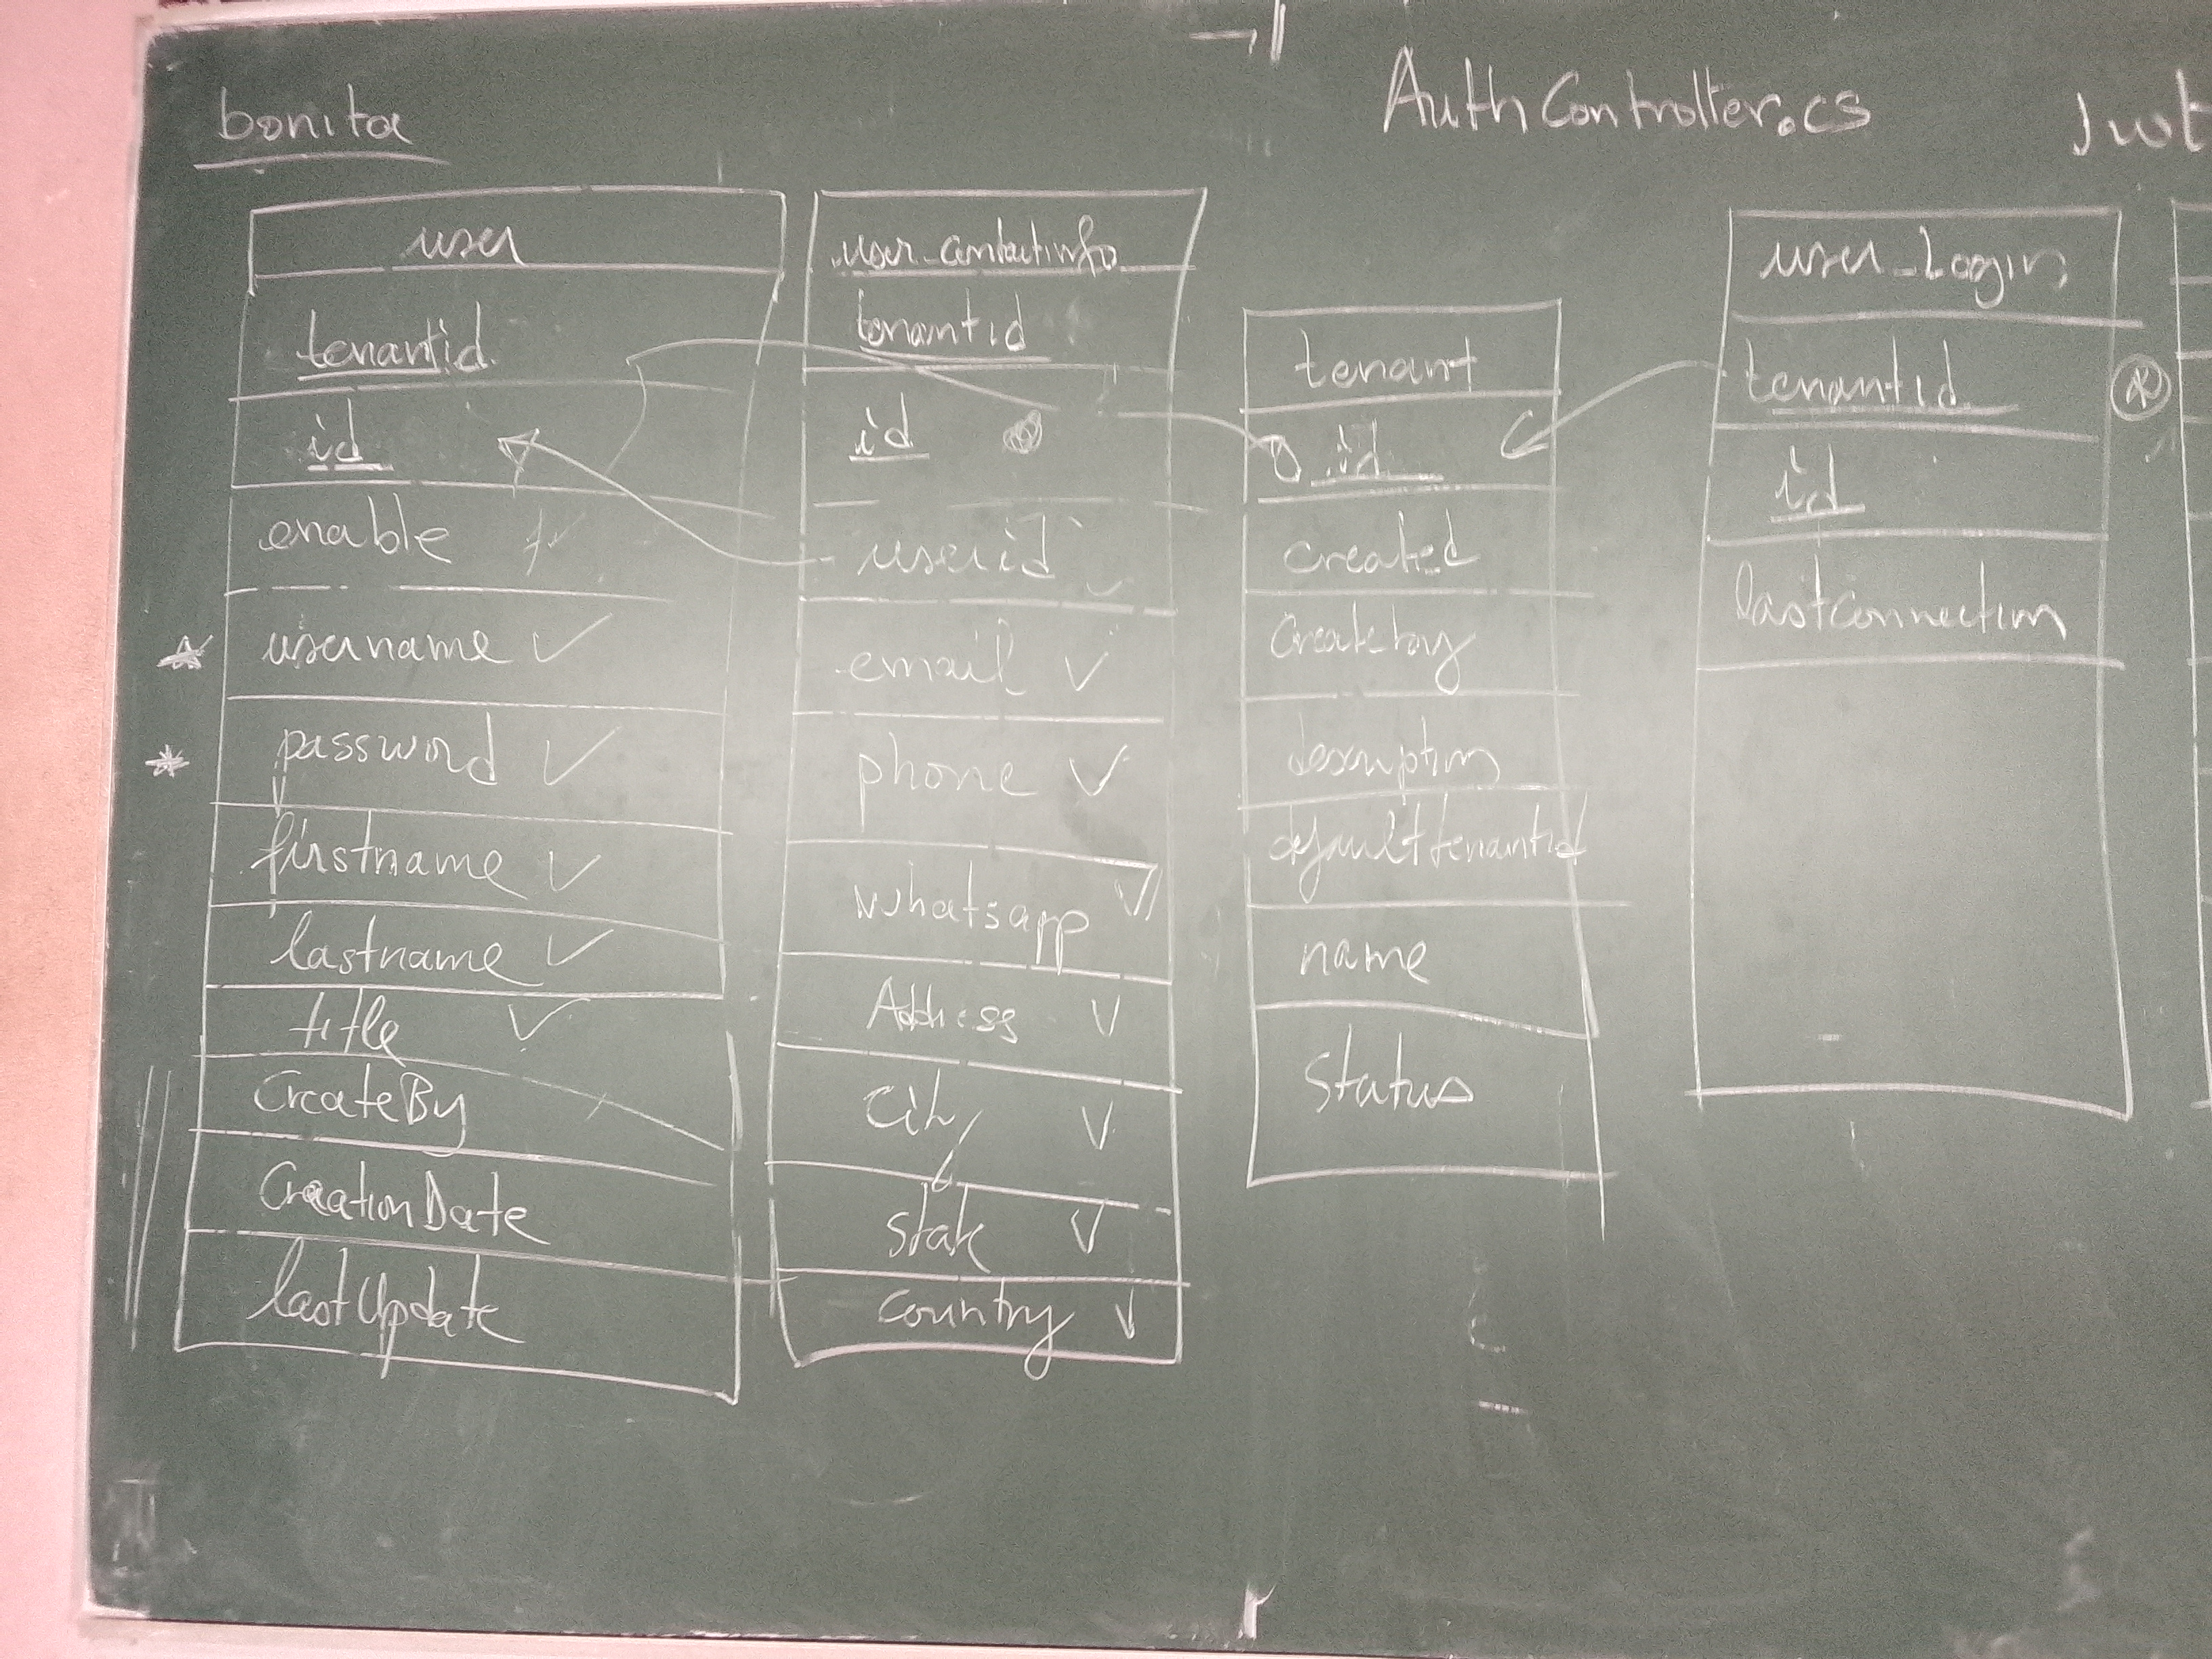 bonita
AuthController.cs
Jwt
user
tenantid
id
enable
username ✓
password ✓
firstname ✓
lastname ✓
title ✓
CreateBy
CreationDate
lastUpdate
user_contactinfo
tenantid
id
userid
email ✓
phone ✓
whatsapp ✓
Address ✓
City ✓
State ✓
Country ✓
tenant
id
created
Createby
description
defaulttenantid
name
Status
user_Login
tenantid
id
lastconnection